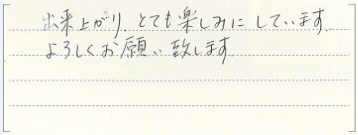 出来上がり、とても楽しみにしています
よろしくお願い致します